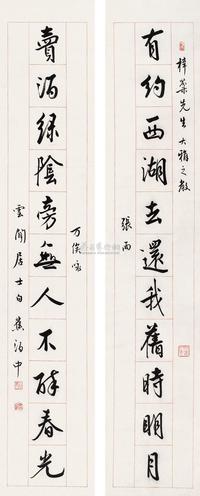 梓棻先生大雅之教
有约西湖去還我舊時明月
張雨
賣酒绿陰旁無人不醉春光
万俟咏
雲間居士白蕉酒中